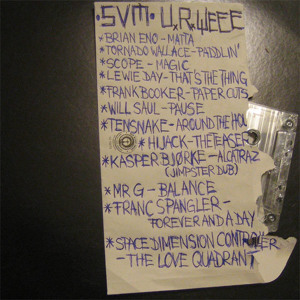 ·SVM· U.R.WEEE
*BRIAN ENO-MATTA
*TORNADO WALLACE-PADDLIN'
*SCOPE-MAGIC
*LEWIE DAY-THAT'S THE THING
*FRANK BOOKER-PAPER CUTS
*WILL SAUL-PAUSE
*TENSNAKE-AROUND THE HOU
*HIJACK-THE TEASER
*KASPER BJØRKE-ALCATRAZ
(JIMPSTER DUB)
*MR G-BALANCE
*FRANC SPANGLER-
FOREVER AND A DAY
*SPACE DIMENSION CONTROLLER
-THE LOVE QUADRANT